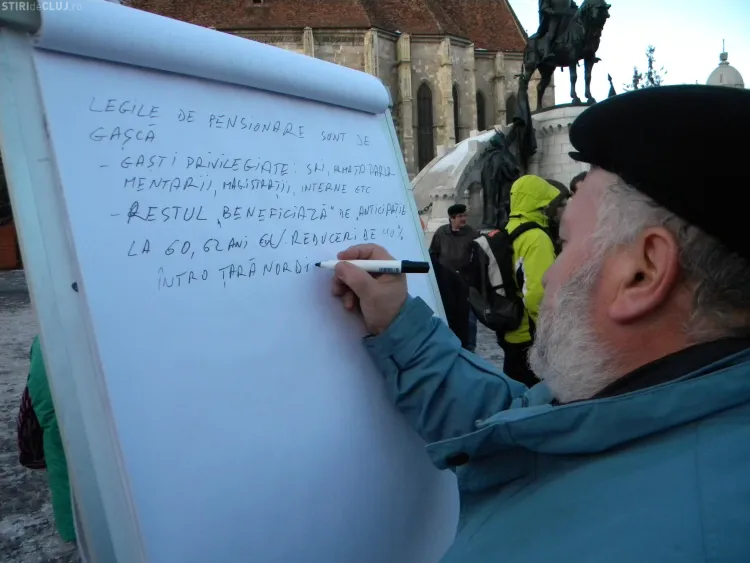 ȘTIRIdeCLUJ.ro
LEGILE DE PENSIONARE SUNT DE
GAȘCĂ
- GĂȘTI PRIVILEGIATE: SRI,
MENTARII, MAGISTRAȚII, INTERNE ETC
- RESTUL "BENEFICIAZĂ" DE "ANTICIPATE
LA 60, 62 ANI CU REDUCERI DE 40%
ÎNTRO ȚARĂ NORDI